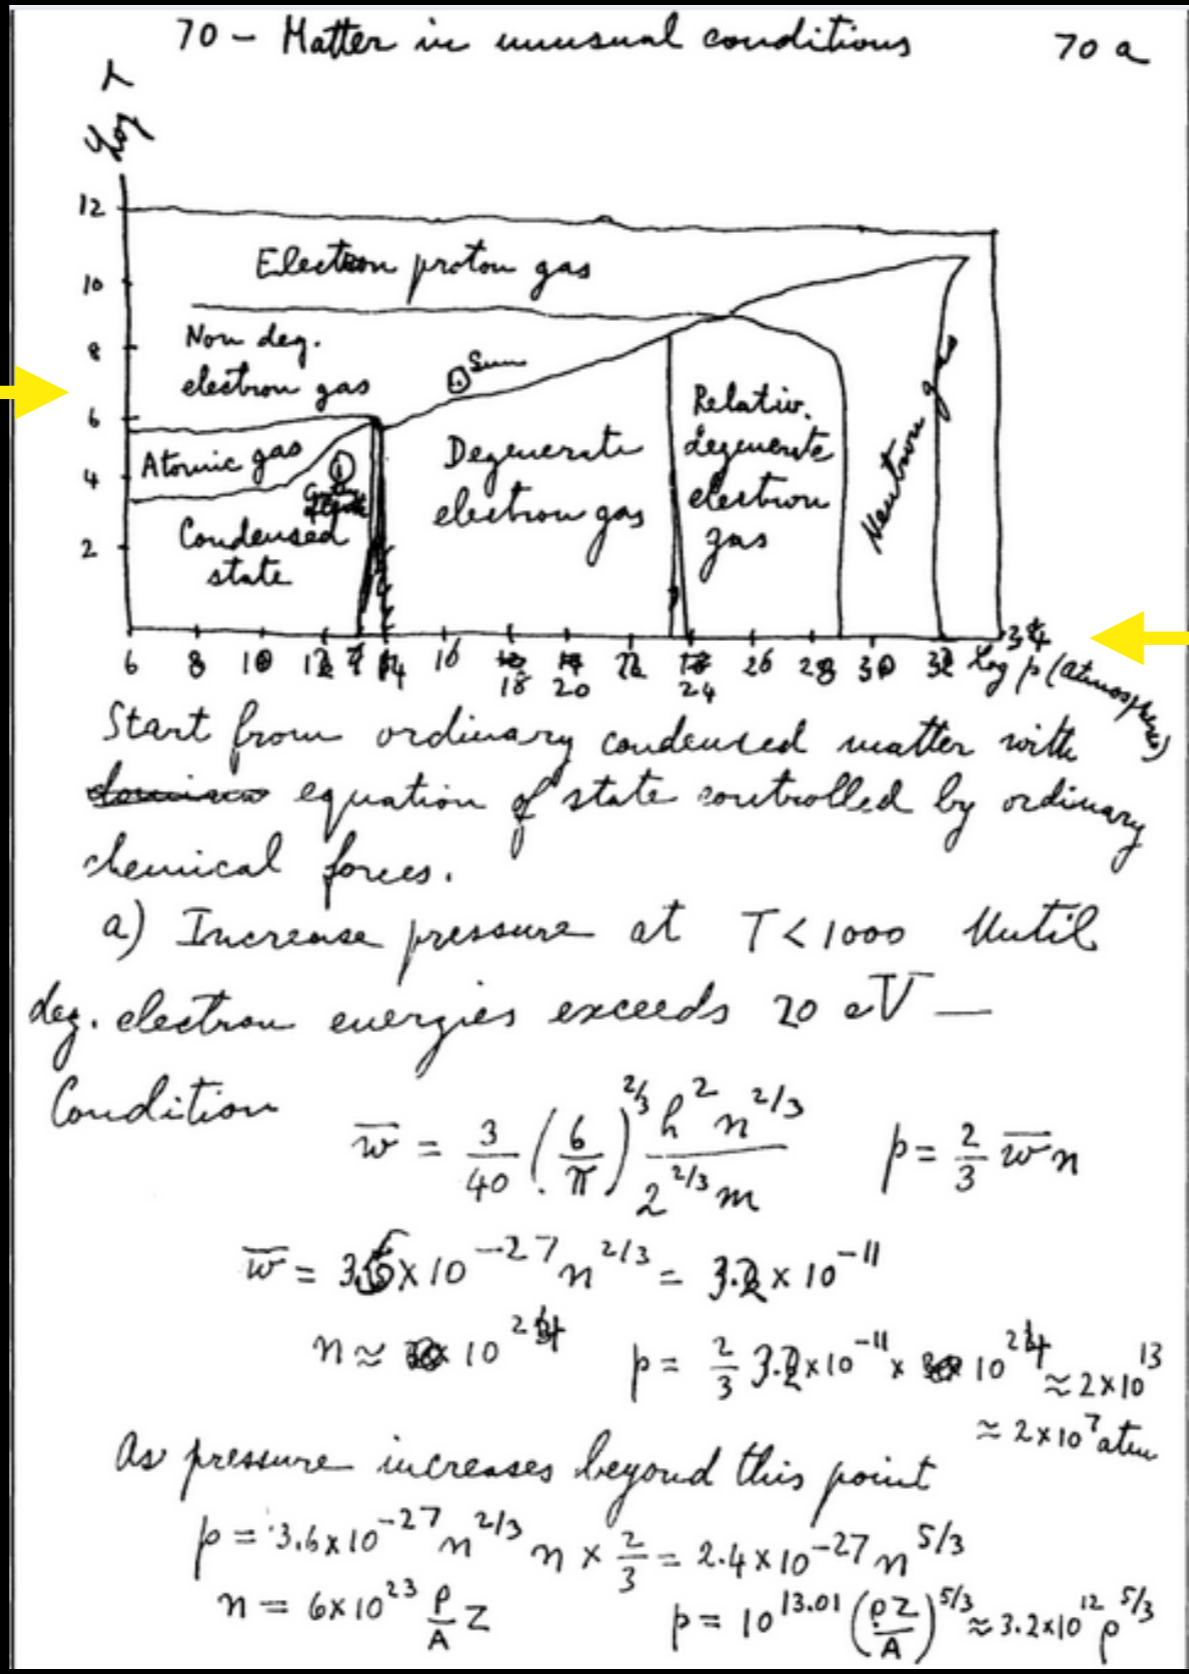 70 - Matter in unusual conditions 70 a
Log T
12
Electron proton gas
10
Non deg.
8
Sun
electron gas
6
Relativ.
Atomic gas
Degenerate
degenerate
4
electron gas
electron
Neutron gas
Condensed
2
gas
state
6 8 10 12 14 16 18 20 22 24 26 28 30 32 34
Log p (atmospheres)
Start from ordinary condensed matter with
equation of state controlled by ordinary
chemical forces.
a) Increase pressure at T < 1000 Until
deg. electron energies exceeds 20 eV —
Condition
w̄ = 3/40 (6/π)^2/3 h^2 n^2/3 / 2^2/3 m p = 2/3 w̄ n
w̄ = 3.6 × 10^-27 n^2/3 = 3.2 × 10^-11
n ≈ 10^24 p = 2/3 3.2 × 10^-11 × 10^24 ≈ 2 × 10^13
≈ 2 × 10^7 atm
As pressure increases beyond this point
p = 3.6 × 10^-27 n^2/3 n × 2/3 = 2.4 × 10^-27 n^5/3
n = 6 × 10^23 ρ/A Z p = 10^13.01 (ρZ/A)^5/3 ≈ 3.2 × 10^12 ρ^5/3